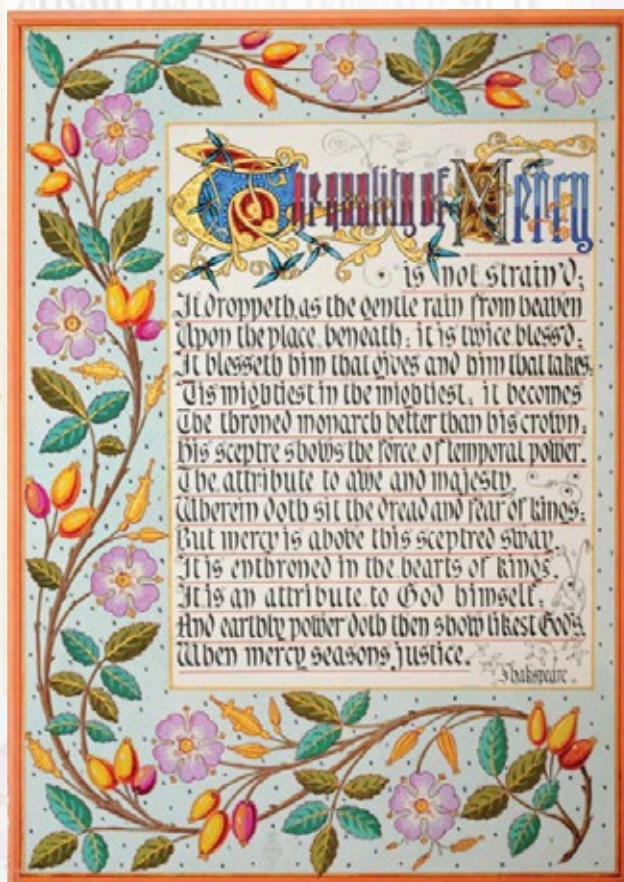 The quality of Mercy
is not strain'd;
It droppeth, as the gentle rain from heaven
Upon the place beneath: it is twice bless'd:
It blesseth him that gives and him that takes.
'Tis mightiest in the mightiest, it becomes
The throned monarch better than his crown:
His sceptre shows the force of temporal power.
The attribute to awe and majesty,
Wherein doth sit the dread and fear of kings:
But mercy is above this sceptred sway.
It is enthroned in the hearts of kings.
It is an attribute to God himself:
And earthly power doth then show likest God's.
When mercy seasons justice.
Shakspeare.